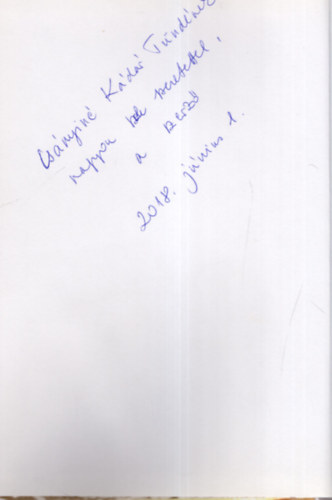 Csányiné Kádár Tündéne
nagyon szeretettel,
a szerző
2018. június 1.